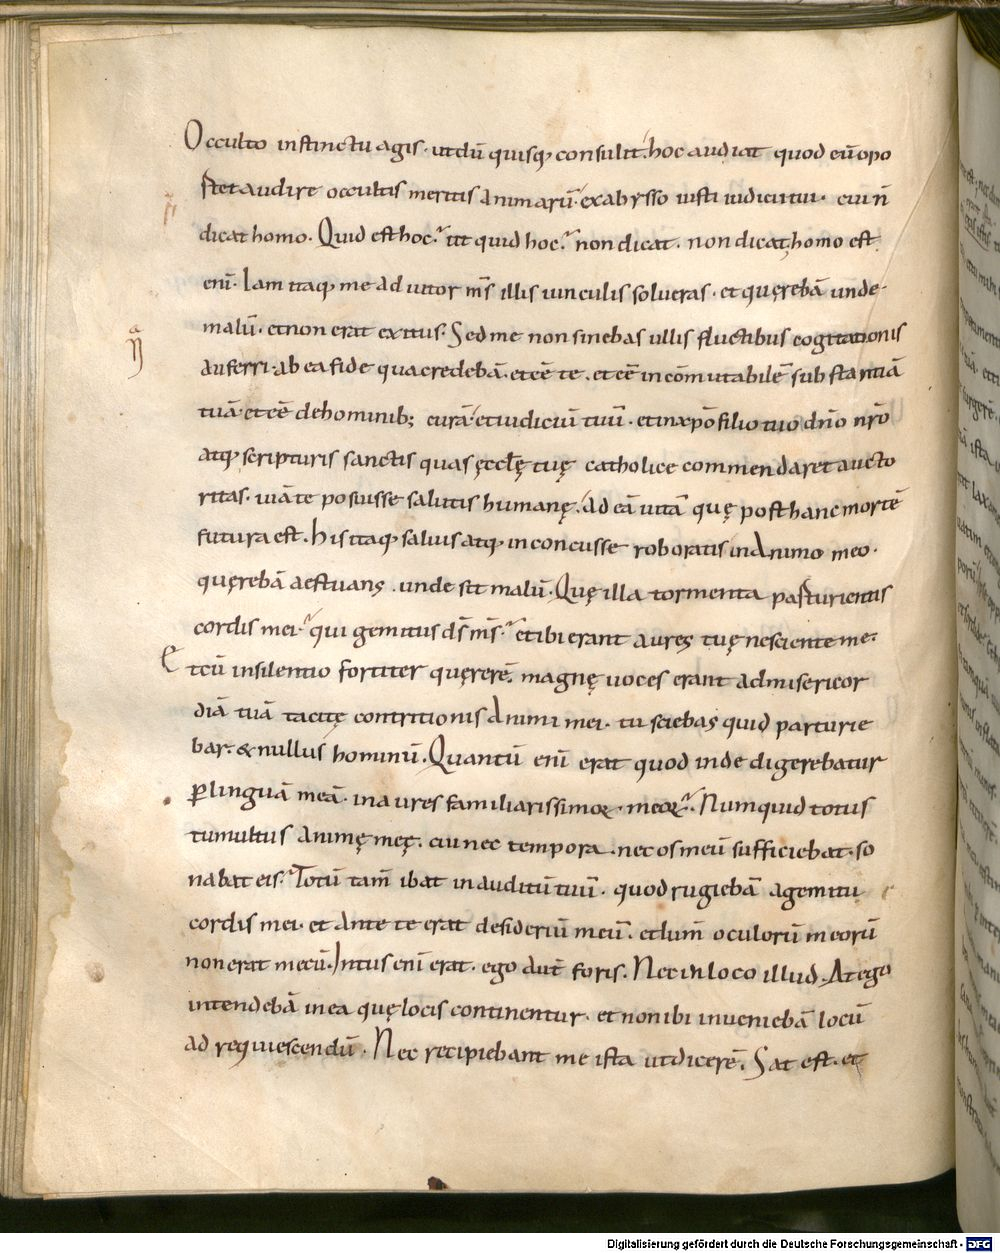 Occulto instinctu agis · ut dū quisq; consulit. hoc audiat quod eū opo
rtet audire occultis meritis animarū. ex abysso iusti iudicii tui · cui n̄
dicat homo. Quid est hoc? ut quid hoc? non dicat. non dicat, homo est
eni̅. Iam itaq; me adiutor m̄s illis uinculis solueras. et quęrebā unde
malū. et non erat exitus. Sed me non sinebas ullis fluctibus cogitationis
auferri. ab ea fide qua credebā. et eē te. et eē incōmutabilē substantiā
tuā et eē de hominib; curā. et iudiciū tuū. et in xp̄o filio tuo dn̄o nr̄o
atq; scripturis sanctis quas ęccłę tuę catholice commendaret aucto
ritas. uiā te posuisse salutis humanę. ad eā uitā quę post hanc mortē
futura est. his itaq; saluis atq; inconcusse roboratis in animo meo.
quęrebā aestuans. unde sit malū. Quę illa tormenta parturientis
cordis mei? qui gemitus ds̄ m̄s? et ibi erant aures tuę nesciente me.
Et cū in silentio fortiter quęrerē. magnę uoces erant ad misericor
diā tuā tacitę contritionis animi mei. tu sciebas quid parturie
bar. & nullus hominū. Quantū eni̅ erat quod inde digerebatur
ꝑ linguā meā. in aures familiarissimoꝝ meoꝝ? Numquid totus
tumultus animę meę. cui nec tempora. nec os meū sufficiebat. so
nabat eis? Totū tam̄ ibat in auditū tuū. quod rugiebā a gemitu
cordis mei. et ante te erat desideriū meū. et lum̄ oculorū meorū
non erat mecū. Intus eni̅ erat. ego aut̄ foris. Nec in loco illud. At ego
intendebā in ea quę locis continentur. et non ibi inueniebā locū
ad requiescendū. Nec recipiebant me ista ut dicerē. Sat est. et
Digitalisierung gefördert durch die Deutsche Forschungsgemeinschaft - DFG